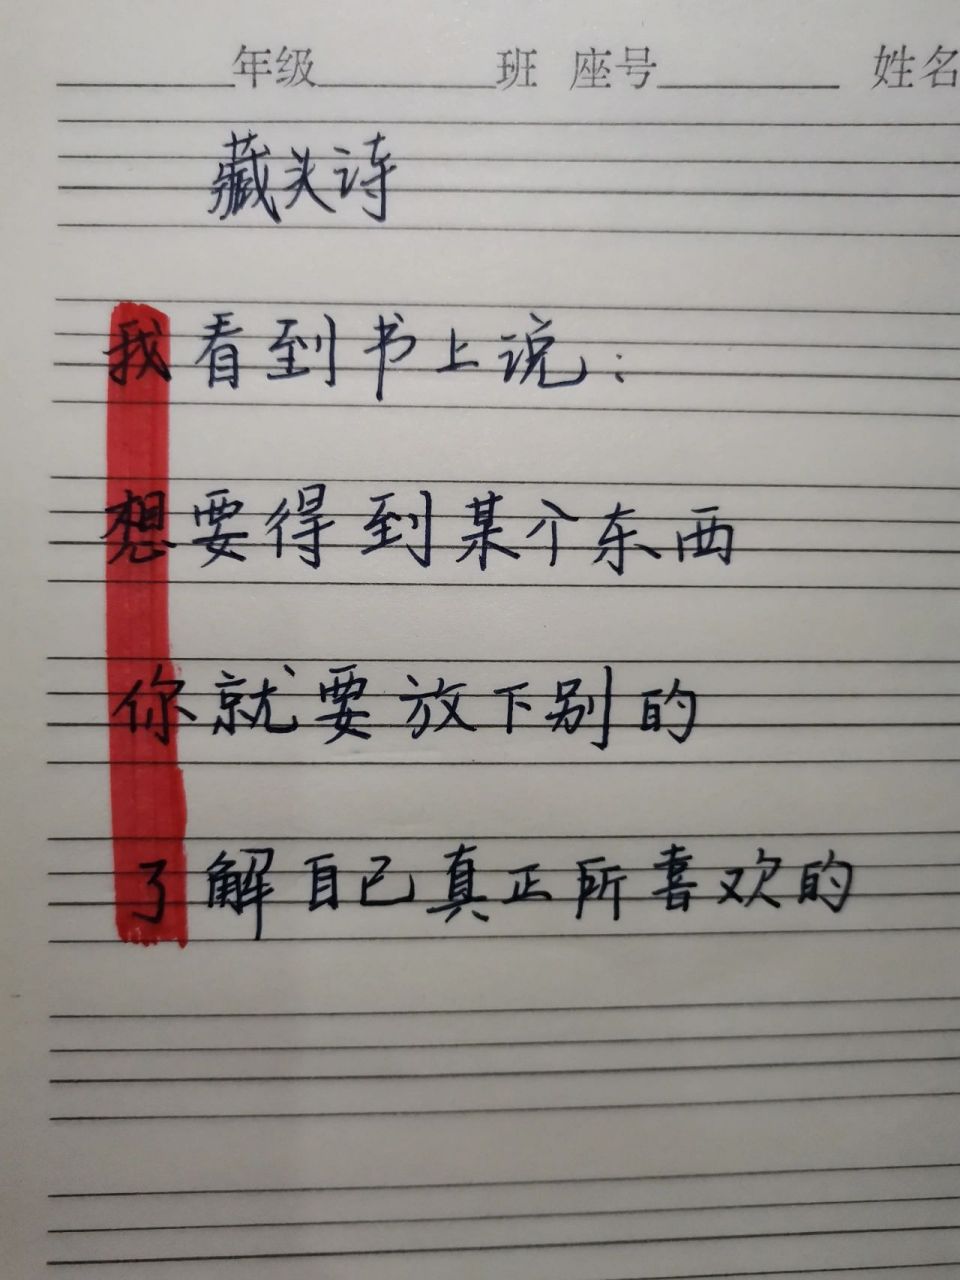 年级 班 座号 姓名
藏头诗
我看到书上说：
想要得到某个东西
你就要放下别的
了解自己真正所喜欢的